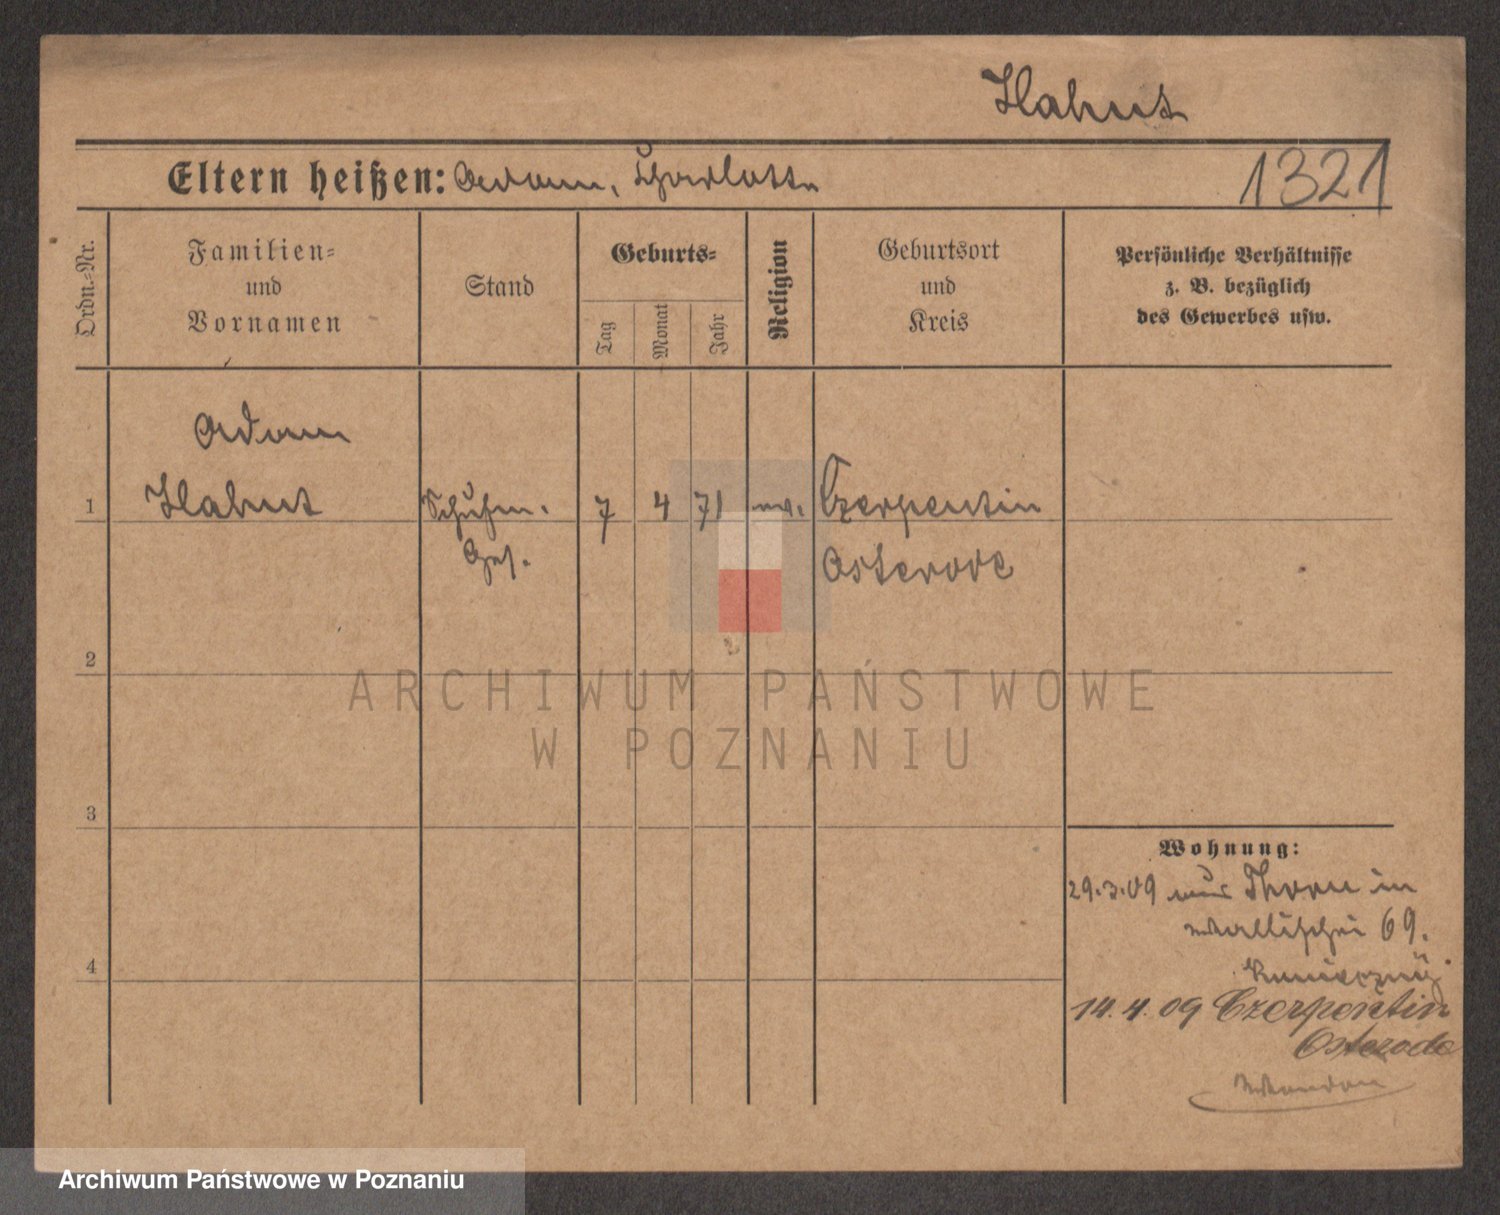 Hahnt
Eltern heißen: Adam, Charlotte
1321
Ordn.-Nr.
Familien-
und
Vornamen
Stand
Geburts-
Tag
Monat
Jahr
Religion
Geburtsort
und
Kreis
Persönliche Verhältnisse
z. B. bezüglich
des Gewerbes usw.
Adam
1 Hahnt Schuhm. 7 4 71 ev. Czerpentin
Ges. Osterode
2
3
4
Wohnung:
29.3.09 aus Thorn in
Wallischei 69.
14.4.09 Czerpentin
Osterode
ARCHIWUM PAŃSTWOWE
W POZNANIU
Archiwum Państwowe w Poznaniu